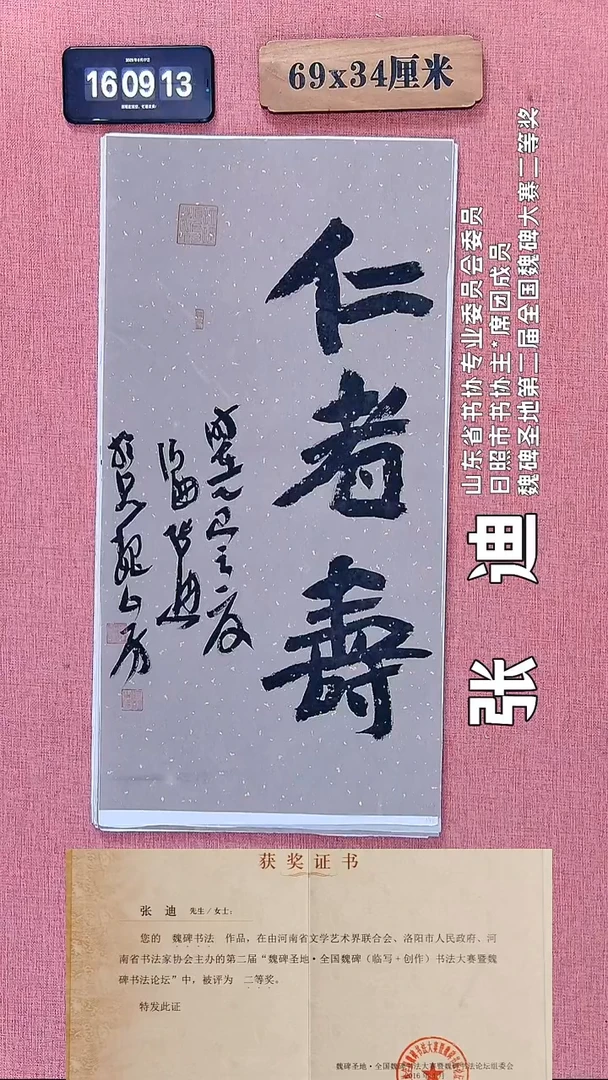 16 09 13
69x34厘米
仁者壽
山东省书协专业委员会委员
日照市书协主*席团成员
魏碑圣地第二届全国魏碑大赛二等奖
张 迪
获奖证书
张 迪 先生/女士：
您的 魏碑书法 作品，在由河南省文学艺术界联合会、洛阳市人民政府、河
南省书法家协会主办的第二届“魏碑圣地·全国魏碑（临写+创作）书法大赛暨魏
碑书法论坛”中，被评为 二等奖。
特发此证
魏碑圣地·全国魏碑书法大赛暨魏碑书法论坛组委会